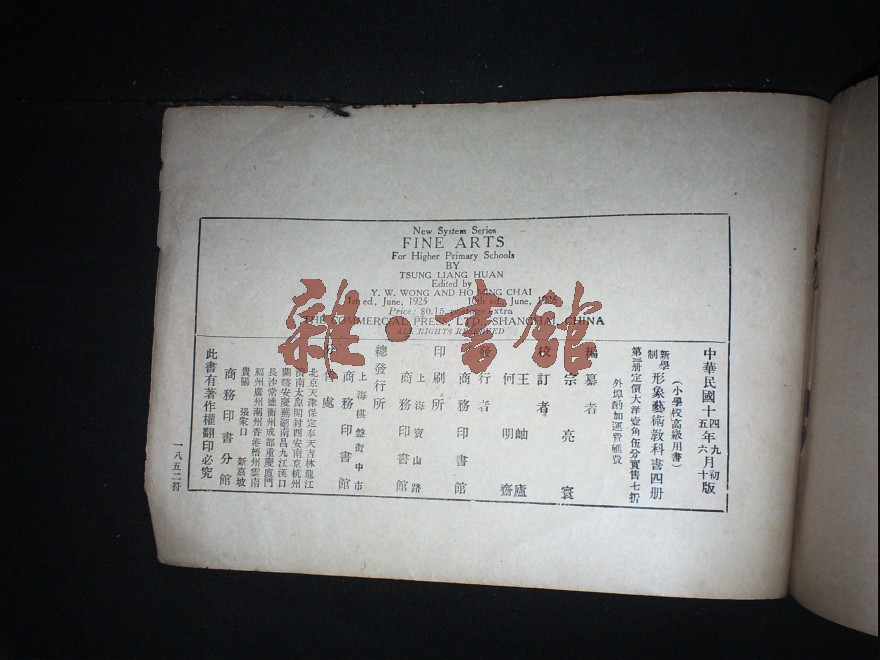 New System Series
FINE ARTS
For Higher Primary Schools
BY
TSUNG LIANG HUAN
Edited by
Y. W. WONG AND HO MING CHAI
1st ed., June, 1925 10th ed., June, 1926
Price: $0.15, postage extra
THE COMMERCIAL PRESS, LTD., SHANGHAI, CHINA
ALL RIGHTS RESERVED
雜·書館
中華民國十四年九月初版
五 六 十
新學制 形象藝術教科書四册
(小學校高級用書)
第 册定價大洋壹角伍分實售七折
外埠酌加運費匯費
編纂者 宗亮寰
校訂者 王岫廬
何明齋
發行者 商務印書館
印刷所 上海寶山路
商務印書館
總發行所 上海棋盤街中市
商務印書館
分售處 北京天津保定奉天吉林龍江
濟南太原開封西安南京杭州
蘭谿安慶蕪湖南昌九江漢口
長沙常德衡州成都重慶廈門
福州廣州潮州香港梧州雲南
貴陽 張家口 新嘉坡
商務印書分館
此書有著作權翻印必究
一八五二符